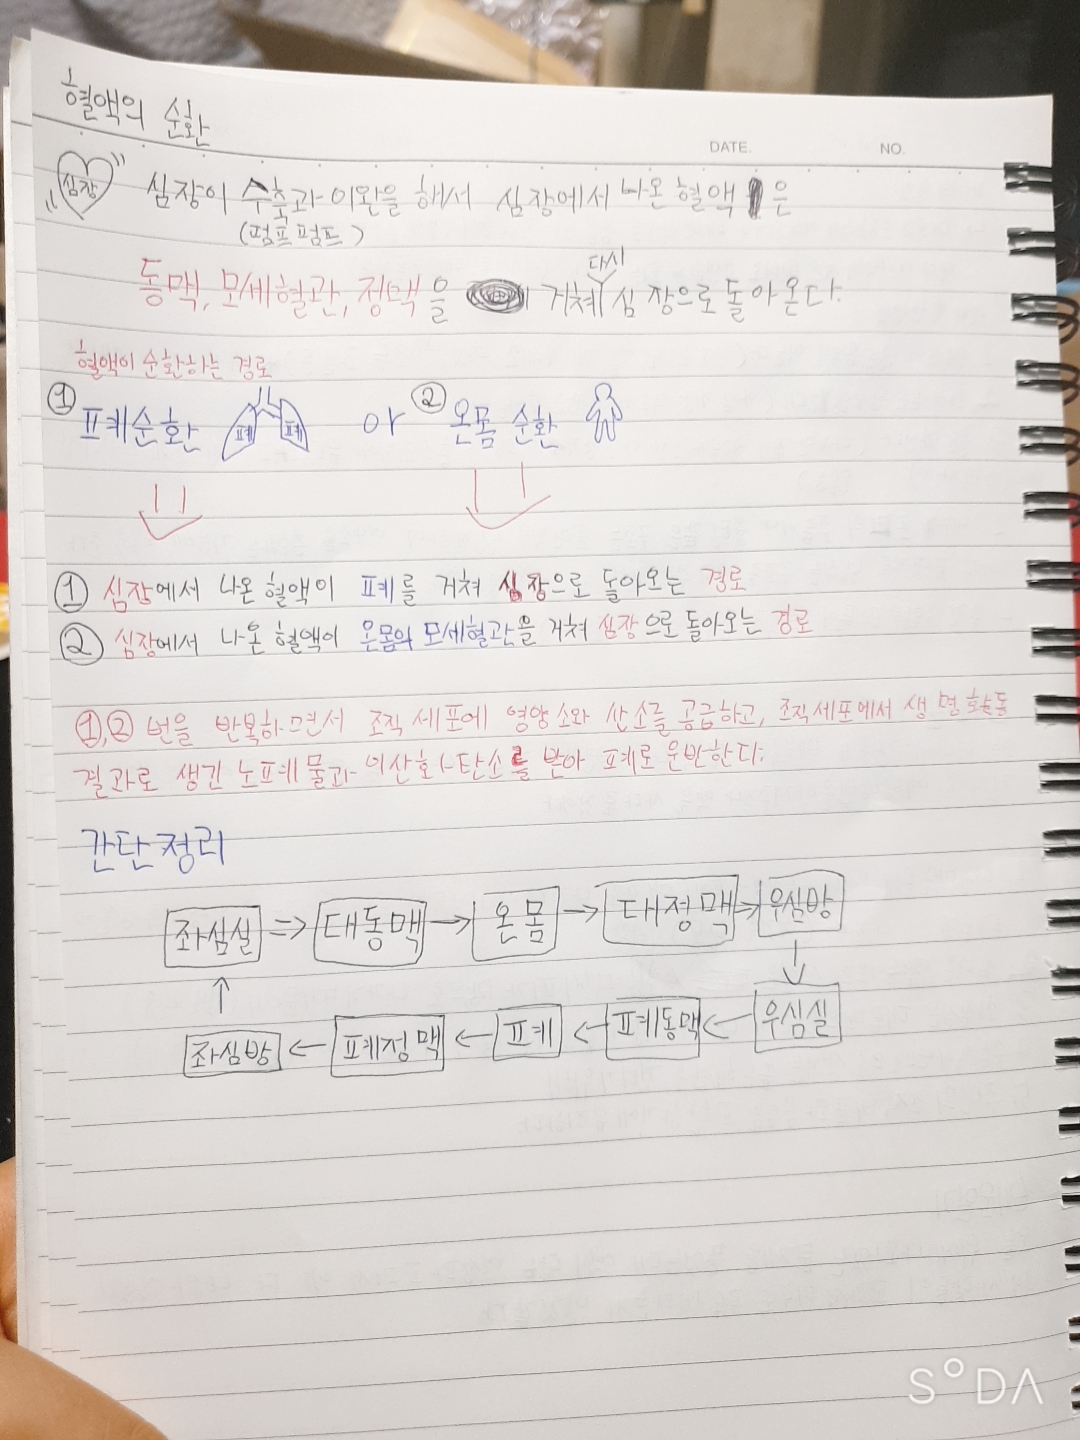 혈액의 순환
DATE. NO.
심장 심장이 수축과 이완을 해서 심장에서 나온 혈액은
(펌프펌프)
다시
동맥, 모세혈관, 정맥을 거쳐 심장으로 돌아온다.
혈액이 순환하는 경로
① 폐순환 폐 폐 or ② 온몸 순환
① 심장에서 나온 혈액이 폐를 거쳐 심장으로 돌아오는 경로
② 심장에서 나온 혈액이 온몸의 모세혈관을 거쳐 심장으로 돌아오는 경로
①,② 번을 반복하면서 조직 세포에 영양소와 산소를 공급하고, 조직세포에서 생명활동
결과로 생긴 노폐물과 이산화탄소를 받아 폐로 운반한다.
간단정리
좌심실 ⇒ 대동맥 → 온몸 → 대정맥 → 우심방
↑ ↓
좌심방 ← 폐정맥 ← 폐 ← 폐동맥 ← 우심실
SODA